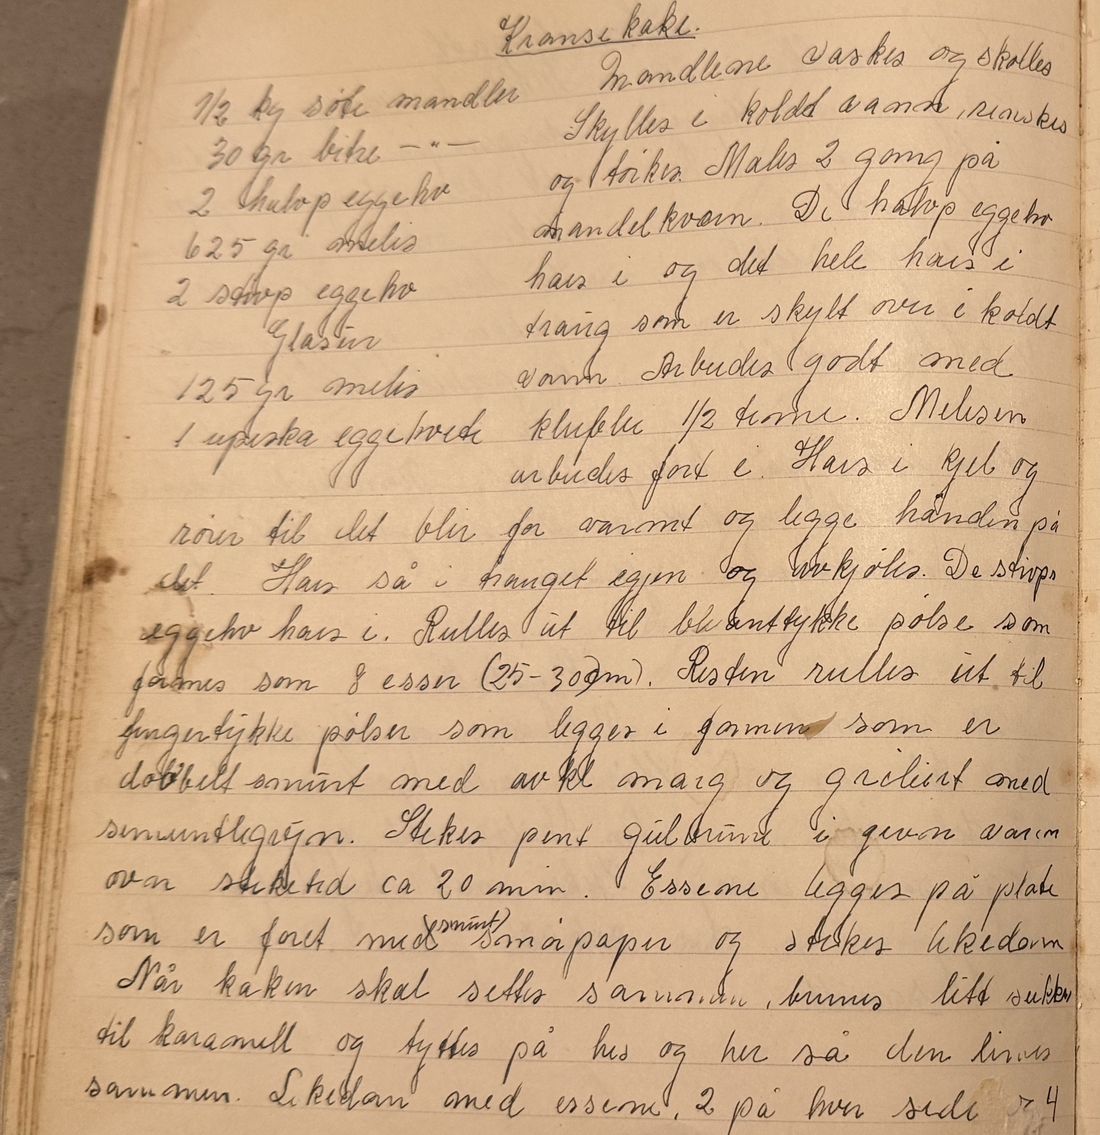 Kransekake.
1/2 kg søte mandler
30 gr bitre —"—
2 halvp eggehv
625 gr melis
2 stivp eggehv
Glasur
125 gr melis
1 upiska eggehvite
Mandlene vaskes og skolles
Skylles i koldt vann, renskes
og tørkes. Males 2 gang på
mandelkvern. De halvp eggehv
haes i og det hele haes i
traug som er skylt over i koldt
vann. Arbeides godt med
klubbe 1/2 time. Melisen
arbeides fort i. Haes i kjel og
rører til det blir for varmt og legge hånden på
det. Haes så i trauget igjen og avkjøles. De stivps
eggehv haes i. Rulles ut til blyanttykke pølse som
formes som 8 esser (25-30cm). Resten rulles ut til
fingertykke pølser som legges i formen som er
dobbelt smurt med avkl marg og griliert med
semuntlegryn. Stekes pent gulbrune i gevn varm
ovn steketid ca 20 min. Essene legges på plate
som er foret med (smurt) smørpaper og stekes likedann
Når kaken skal settes sammen, brunes litt sukker
til karamell og tyttes på her og her så den limes
sammen. Likedan med essene, 2 på hver side og 4